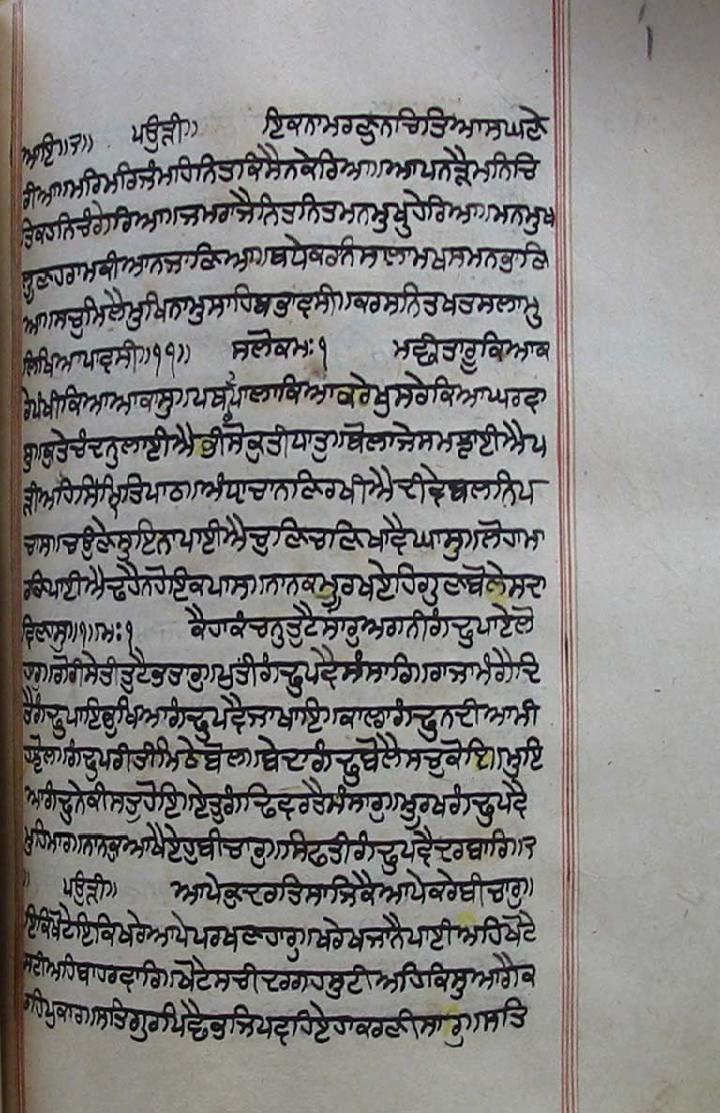 ਆਇ॥੨॥ ਪਉੜੀ॥ ਇਕਨਾਮਰਣੁਨਚਿਤਿਆਸਘਣੇ
ਰਿਆ॥ਮਰਿਮਰਿਜੰਮਹਿਨਿਤਕਿਸੈਨਕੇਰਿਆ॥ਆਪਨੜੈਮਨਿਚਿ
ਤਿਕਹਨਿਚੰਗੇਰਿਆ॥ਜਮਰਾਜੈਨਿਤਨਿਤਮਨਮੁਖਹੇਰਿਆ॥ਮਨਮੁਖ
ਲੂਣਹਰਾਮਕੀਆਨਜਾਣਿਆ॥ਬਧੇਕਰਨਿਸਲਾਮਖਸਮਨਭਾਣਿ
ਆ॥ਸਚੁਮਿਲੈਮੁਖਿਨਾਮੁਸਾਹਿਬਭਾਵਸੀ॥ਕਰਸਨਿਤਖਤਸਲਾਮੁ
ਲਿਖਿਆਪਾਵਸੀ॥੧੧॥ ਸਲੋਕਮਃ੧ ਮਛੀਤਾਰੂਕਿਆਕ
ਰੇਪੰਖੀਕਿਆਆਕਾਸੁ॥ਪਥਰਪਾਲਾਕਿਆਕਰੇਖੁਸਰੇਕਿਆਘਰਵਾ
ਸੁ॥ਕੁਤੇਚੰਦਨੁਲਾਈਐਭੀਸੋਕੁਤੀਧਾਤੁ॥ਬੋਲਾਜੇਸਮਝਾਈਐਪ
ੜੀਅਹਿਸਿੰਮ੍ਰਿਤਿਪਾਠ॥ਅੰਧਾਚਾਨਣਿਰਖੀਐਦੀਵੇਬਲਨਿਪ
ਚਾਸ॥ਚਉਣੇਸੁਇਨਾਪਾਈਐਚੁਣਿਚੁਣਿਖਾਵੈਘਾਸੁ॥ਲੋਹਾਮਾ
ਰਣਿਪਾਈਐਢਹੈਨਹੋਇਕਪਾਸ॥ਨਾਨਕਮੂਰਖਏਹਿਗੁਣਬੋਲੇਸਦਾ
ਵਿਣਾਸੁ॥੧॥ਮਃ੧ ਕੈਹਾਕੰਚਨੁਤੁਟੈਸਾਰੁਅਗਨੀਗੰਢੁਪਾਏਲੋ
ਹਾਰੁ॥ਗੋਰੀਸੇਤੀਤੁਟੈਭਤਾਰੁ॥ਪੁਤੀਗੰਢੁਪਵੈਸੰਸਾਰਿ॥ਰਾਜਾਮੰਗੈਦਿ
ਤੈਗੰਢੁਪਾਇਭੁਖਿਆਗੰਢੁਪਵੈਜਾਖਾਇ॥ਕਾਲਾਗੰਢੁਨਦੀਆਮੀ
ਹਝੋਲ॥ਗੰਢੁਪਰੀਤੀਮਿਠੇਬੋਲ॥ਬੇਦਾਗੰਢੁਬੋਲੈਸਚੁਕੋਇ॥ਮੁਇ
ਆਗੰਢੁਨੇਕੀਸਤੁਹੋਇ॥ਏਤੁਗੰਢਿਵਰਤੈਸੰਸਾਰੁ॥ਮੂਰਖਗੰਢੁਪਵੈ
ਮੁਹਿਮਾਰ॥ਨਾਨਕੁਆਖੈਏਹੁਬੀਚਾਰੁ॥ਸਿਫਤੀਗੰਢੁਪਵੈਦਰਬਾਰਿ॥੨
॥ ਪਉੜੀ॥ ਆਪੇਕੁਦਰਤਿਸਾਜਿਕੈਆਪੇਕਰੇਬੀਚਾਰੁ॥
ਇਕਿਖੋਟੇਇਕਿਖਰੇਆਪੇਪਰਖਣਹਾਰੁ॥ਖਰੇਖਜਾਨੈਪਾਈਅਹਿਖੋਟੇ
ਸਟੀਅਹਿਬਾਹਰਵਾਰਿ॥ਖੋਟੇਸਚੀਦਰਗਹਸੁਟੀਅਹਿਕਿਸੁਆਗੈਕ
ਰਹਿਪੁਕਾਰ॥ਸਤਿਗੁਰਪਿਛੈਭਜਿਪਵਹਿਏਹਾਕਰਣੀਸਾਰੁ॥ਸਤਿ